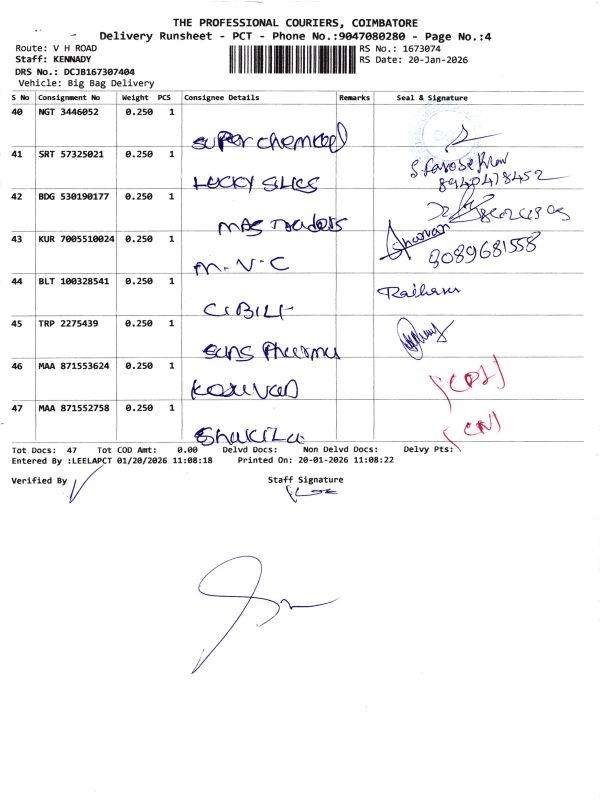 THE PROFESSIONAL COURIERS, COIMBATORE
Delivery Runsheet - PCT - Phone No.:9047080280 - Page No.:4
Route: V H ROAD
RS No.: 1673074
Staff: KENNADY
RS Date: 20-Jan-2026
DRS No.: DCJB167307404
Vehicle: Big Bag Delivery
S No Consignment No Weight PCS Consignee Details Remarks Seal & Signature
40 NGT 3446052 0.250 1
super chemical
41 SRT 57325021 0.250 1
LUCKY SLICS
8940478452
42 BDG 530190177 0.250 1
MAS Traders
43 KUR 7005510024 0.250 1
Sharvan
9089681558
M.V.C
44 BLT 100328541 0.250 1
45 TRP 2275439 0.250 1
suns Pharma
46 MAA 871553624 0.250 1
47 MAA 871552758 0.250 1
Shakila
Tot Docs: 47 Tot COD Amt: 0.00 Delvd Docs: Non Delvd Docs: Delvy Pts:
Entered By :LEELAPCT 01/20/2026 11:08:18 Printed On: 20-01-2026 11:08:22
Verified By
Staff Signature